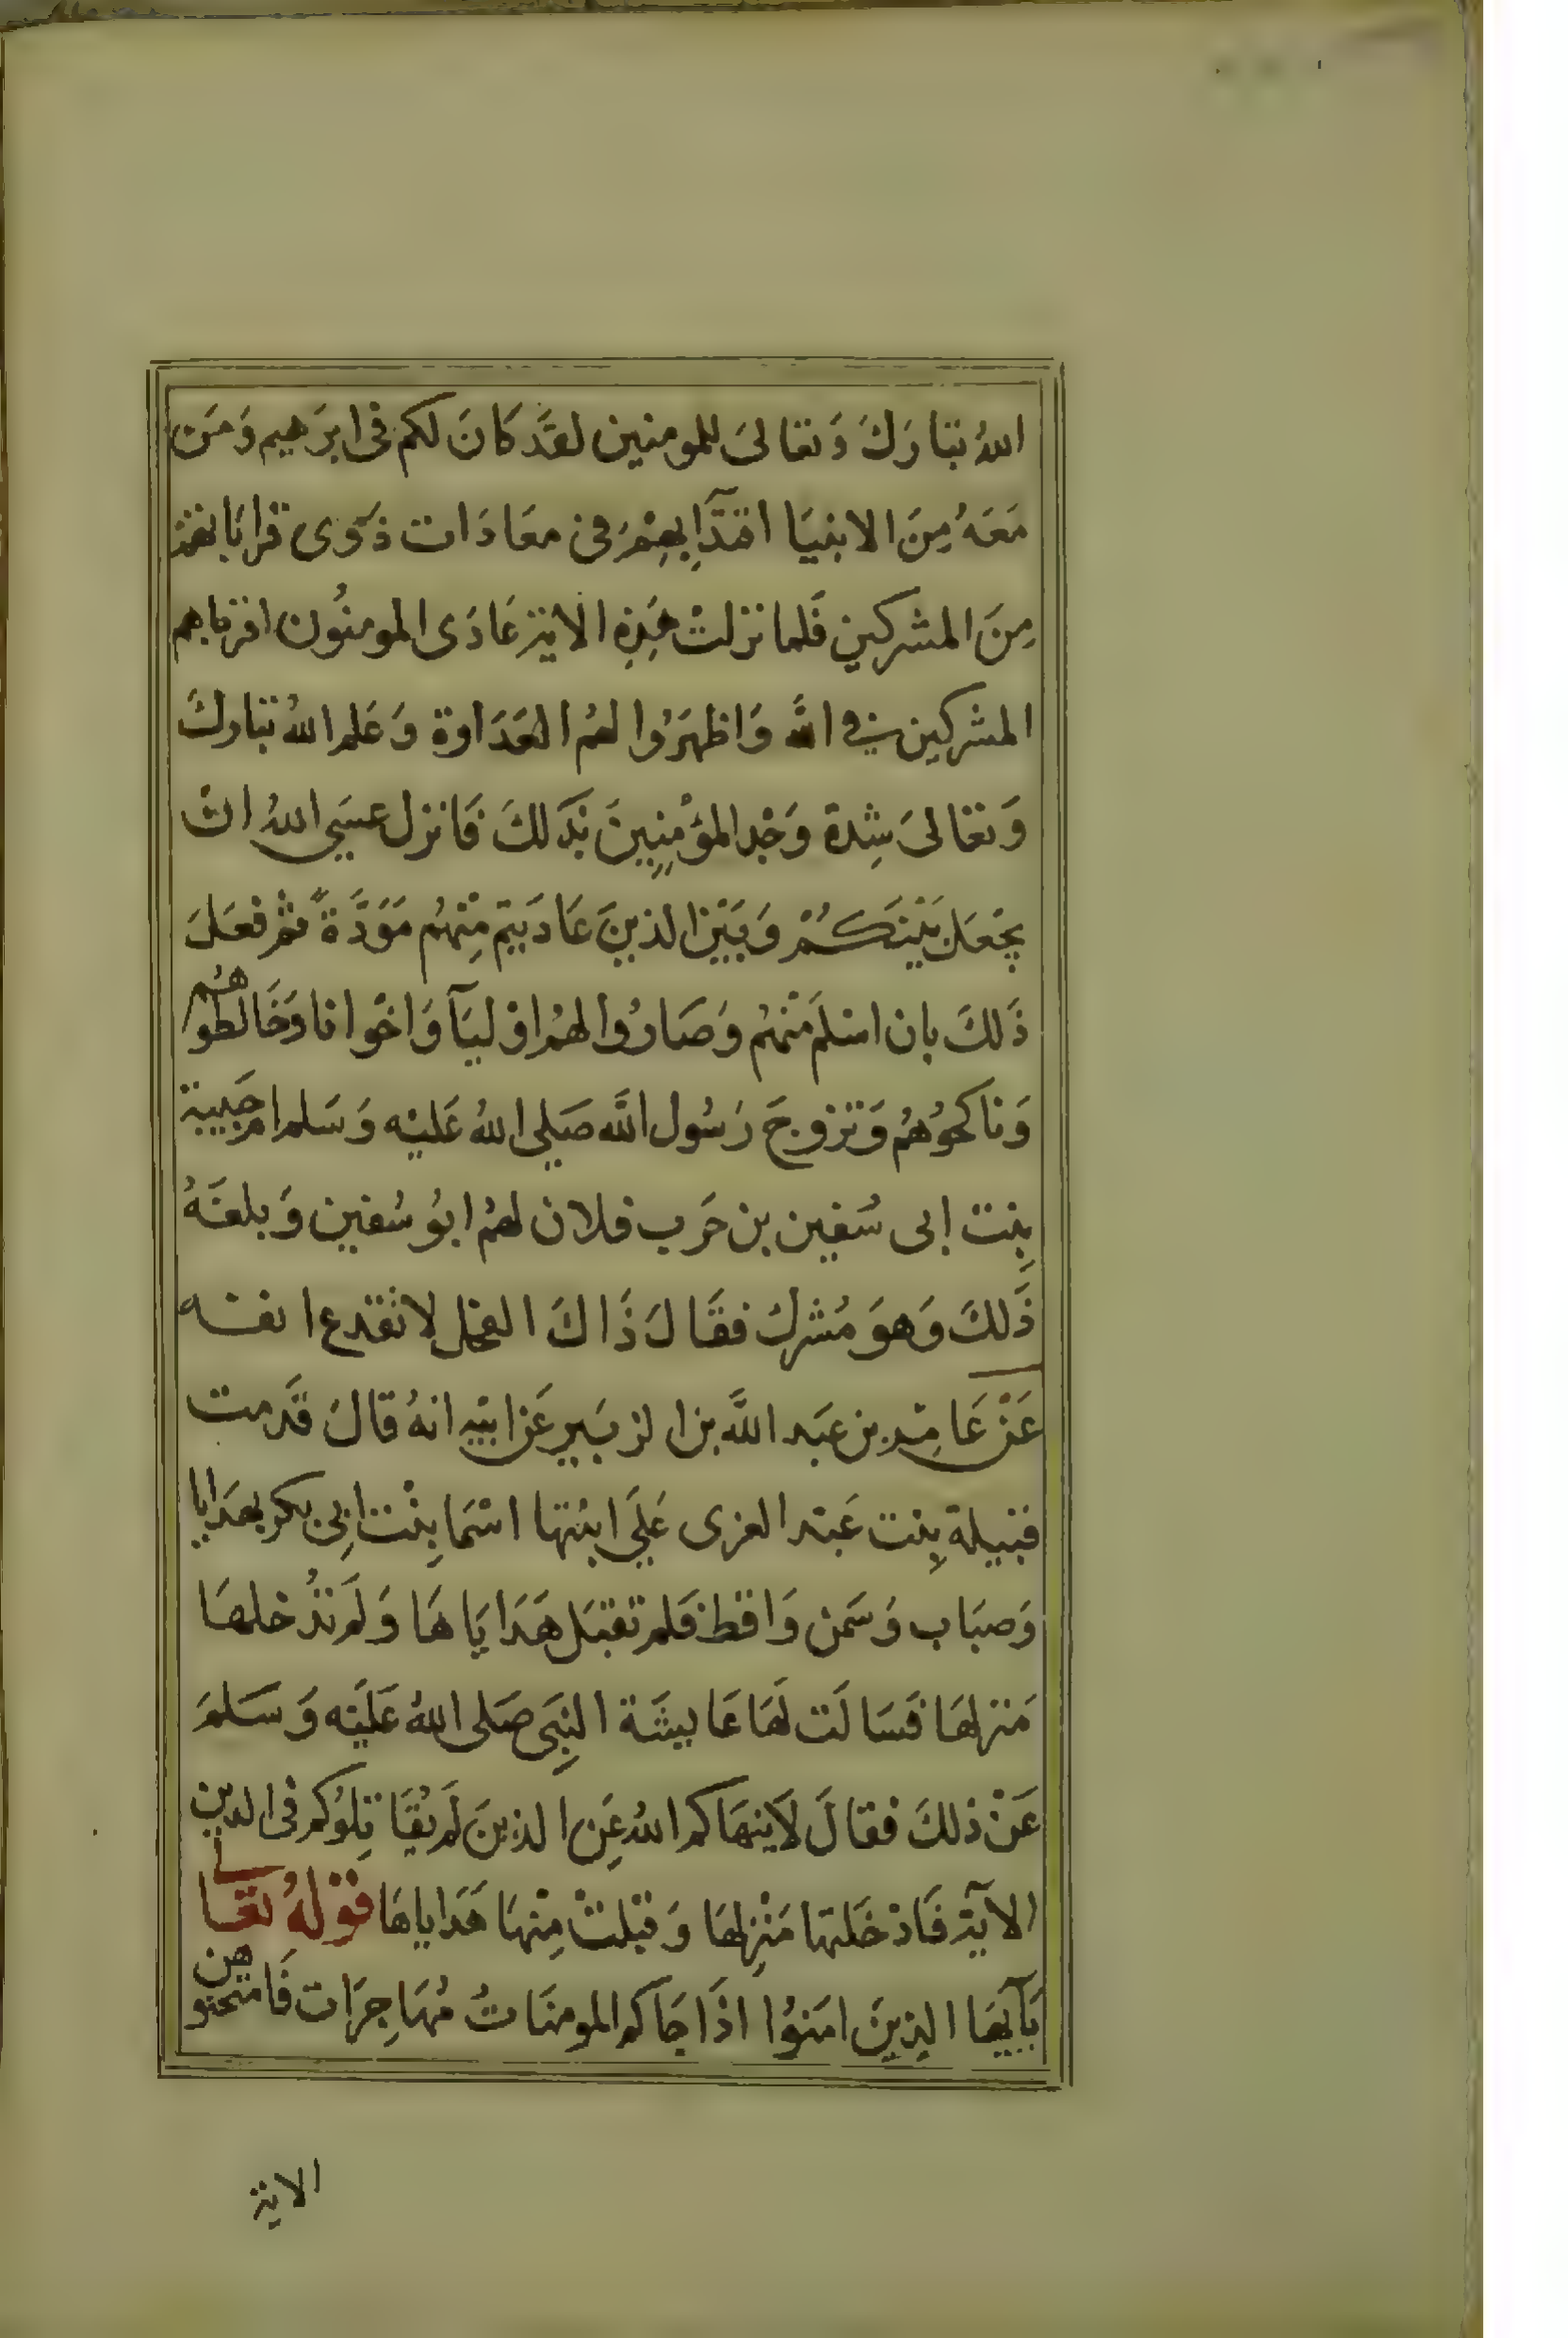 اللهُ تبارَكَ وَتعالىَ للمومنين لقَد كَانَ لكم فى ابرَهيم وَمَن
مَعَهُ مِنَ الانبيَا اقتدَآ بهِمْ فى معَادَات ذوَى قراباتهم
مِنَ المشركين فَلما نزلتْ هَذِهِ الاية عَادَى المومنُون اقرباهم
المشركين فى الله وَاظهَرُوا لهمُ العَدَاوة وَعَلم اللهُ تبارك
وَتعَالىَ شِدة وَجْد المؤمِنِينَ بذَلكَ فَانزل عسَى اللهُ انْ
يجْعَل بَيْنَكُمْ وَبَيْنَ الذينَ عَادَيتم مِنْهُم مَوَدَّةً ثم فعَلَ
ذَلكَ بان اسْلَم مْنهُم وَصَارُوا لهمْ اوْليَآ وَاخْوانا وَخَالطوهُم
وَناكحُوْهُمْ وَتزوجَ رَسُول الله صَلى اللهُ عَليْه وَسَلم ام حَبيبة
بِنت ابى سُفين بن حَرب فلان لهمُ ابوُ سُفين وَبلغَهُ
ذَلكَ وَهوَ مُشرك فقَالَ ذَاكَ الفحْل لا تقدع انفه
عَنْ عَامِر بن عبَد اللَّه بن الزبَير عَن ابيْهِ انهُ قالَ قدَمت
قتيلة بِنت عَبْد العزى عَلىَ ابْنتها اسْمَا بِنْت ابِى بكر بهدَايا
وَضبَاب وَسَمن وَاقط فلم تقبَل هَدَايَاهَا وَلَم تدُخلهَا
مَنزلهَا فَسَالَت لَهَا عَايشَة النبِىَ صَلى اللهُ عَلَيْه وَسَلمَ
عَنْ ذلكَ فقالَ لَا ينهَاكم اللهُ عَن الذينَ لَم يقُاَتِلوُكم فى الدين
الآية فَادْخَلتها مَنْزِلهَا وَقبْلتْ مِنْهَا هَدَاياهَا قوْلهُ تعَالى
يَآ ايهَا الذِينَ امَنوُا اذَا جَاكم المومنَاتُ مُهَاجِرَات فَامتحنوهن
الاية